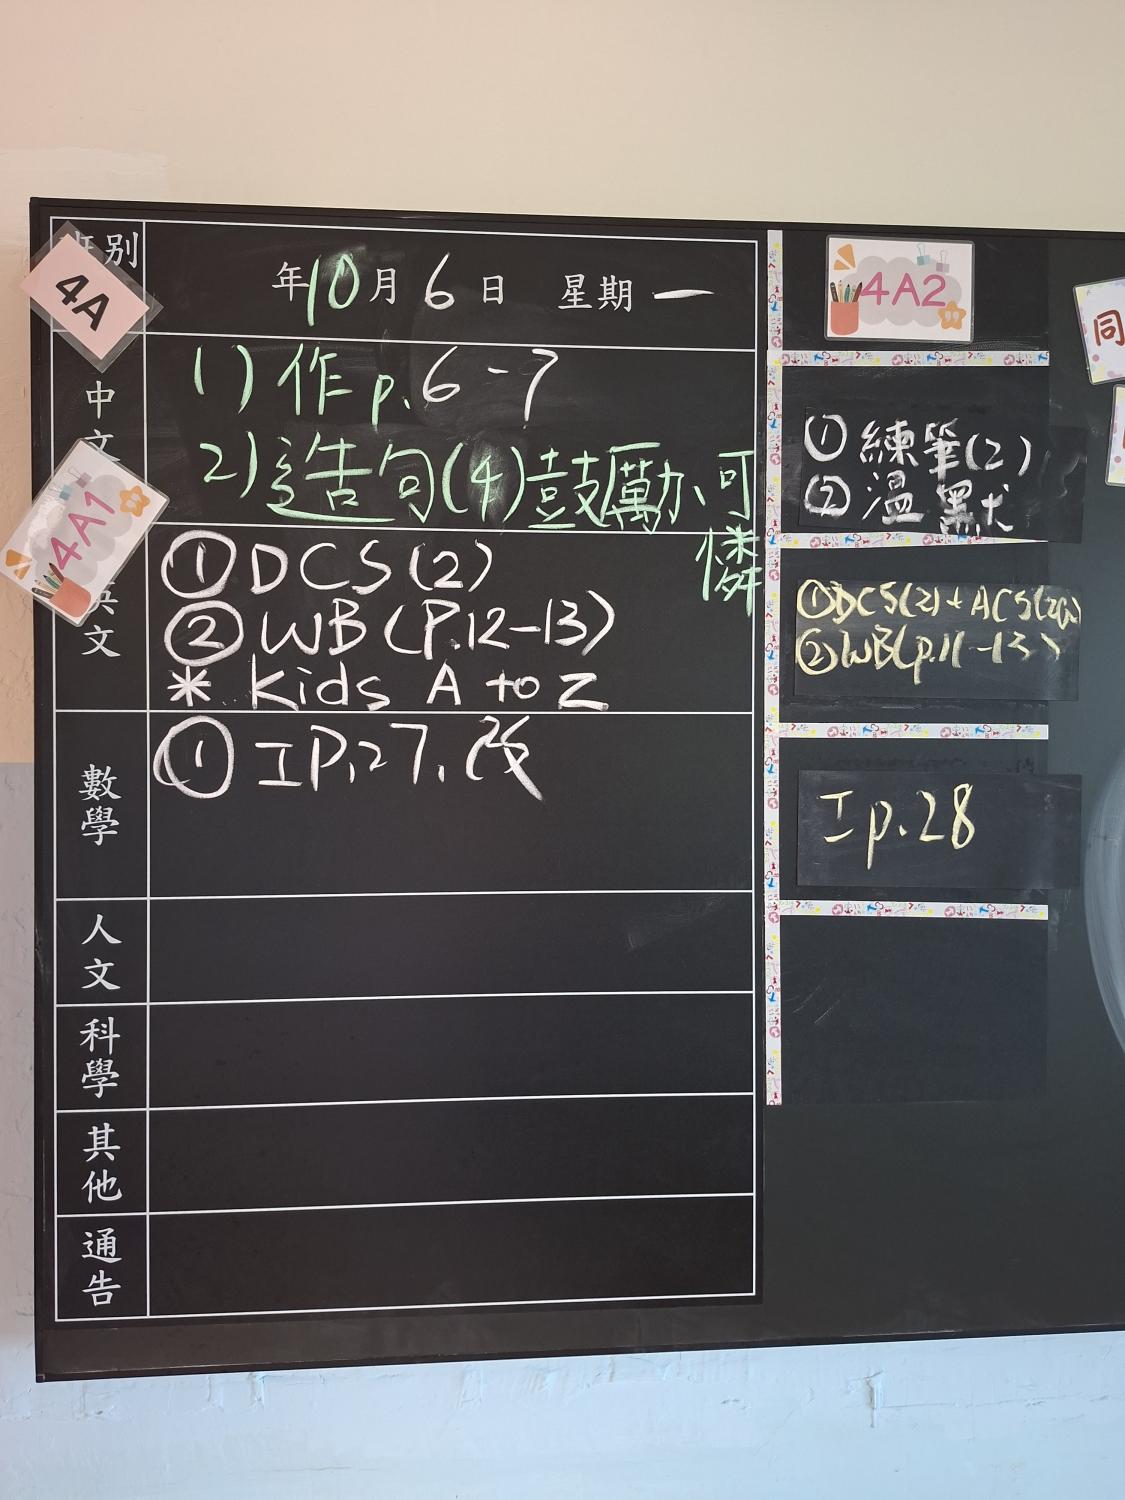 別
4A
年10月6日 星期一
中文
1) 作 p.6-7
2) 造句(4)鼓勵、可
憐
4A1
英文
① DCS(2)
② WB (P.12-13)
* Kids A to Z
數學
① IP.27.改
人文
科學
其他
通告
4A2
① 練筆(2)
② 溫默
① DCS(2)+ACS(2
② WB(p.11-13)
I p.28
同